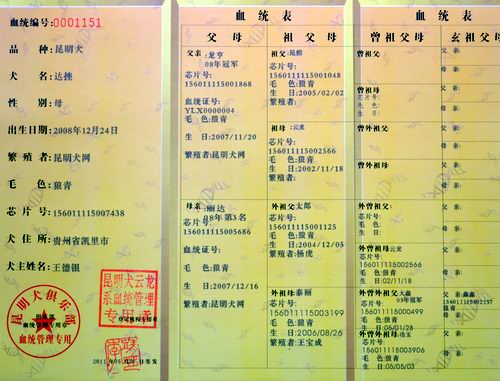 血统编号:0001151
品 种:昆明犬
犬 名:达挫
性 别:母
出生日期:2008年12月24日
繁殖者:昆明犬网
毛 色:狼青
芯片号:156011115007438
犬住所:贵州省凯里市
犬主姓名:王德银
昆明犬俱乐部
血统管理专用章
血统管理专用
昆明犬云龙
系血统管理
专用章
血统表
父母
祖父母
父亲:龙亨
08年冠军
芯片号:
156011115001868
血统证号:
YLX0000004
毛 色:狼青
生 日:2007/11/20
繁殖者:昆明犬网
母亲:丽达
08年第3名
芯片号:
156011115005686
血统证号:
毛 色:狼青
生 日:2007/12/16
繁殖者:昆明犬网
祖父:昆熊
芯片号:
156011115001048
毛 色:狼青
生 日:2005/02/02
繁殖者:
祖母:云龙
芯片号:
156011115002566
毛 色:狼青
生 日:2002/11/18
繁殖者:
外祖父:太郎
芯片号:
156011115001125
毛 色:狼青
生 日:2004/12/05
繁殖者:杨虎
外祖母:泰丽
芯片号:
156011115003199
毛 色:狼青
生 日:2006/08/26
繁殖者:王宝成
血统表
曾祖父母
玄祖父母
曾祖父
芯片号:
毛 色:
生 日:
曾祖母
曾外祖父
曾外祖母
外曾祖父
芯片号:
毛 色:
生 日:
外曾祖母:云龙
芯片号:
156011115002566
毛 色:狼青
02/11/18
外曾外祖父:大淼
09年冠军
156011115000496
毛 色:狼青
05/01/28
外曾外祖母:功玉
芯片号:
156011115003906
毛 色:狼青
05/05/03
父亲:
母亲:
父亲:
母亲:
父亲:
母亲:
父亲:
母亲:
父亲:
母亲:
父亲:
母亲:
父亲:鑫鑫
狼青
母亲:
父亲:
母亲: